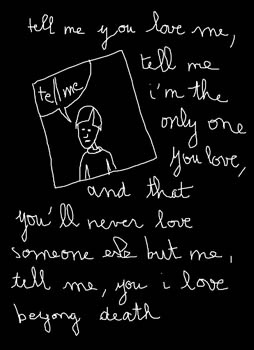 tell me you love me,
tell me
tell me
i'm the
only one
you love,
and that
you'll never love
someone else but me,
tell me, you i love
beyong death